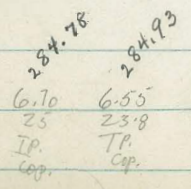 284.78 284.93
6.70 6.55
25 23.8
IP. TP.
Cop. Cop.